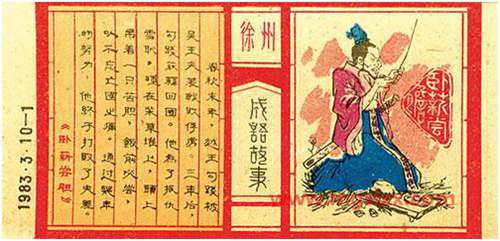 徐州
成语故事
卧薪尝胆
春秋末年，越王勾践被
吴王夫差战败俘虏。三年后，
勾践获释回国。他为了报仇
雪耻，睡在柴草堆上，头上
吊着一只苦胆，饭前必尝，
以不忘亡国之痛。通过年
的努力，他终于打败了夫差。
《卧薪尝胆》
1983.3.10-1